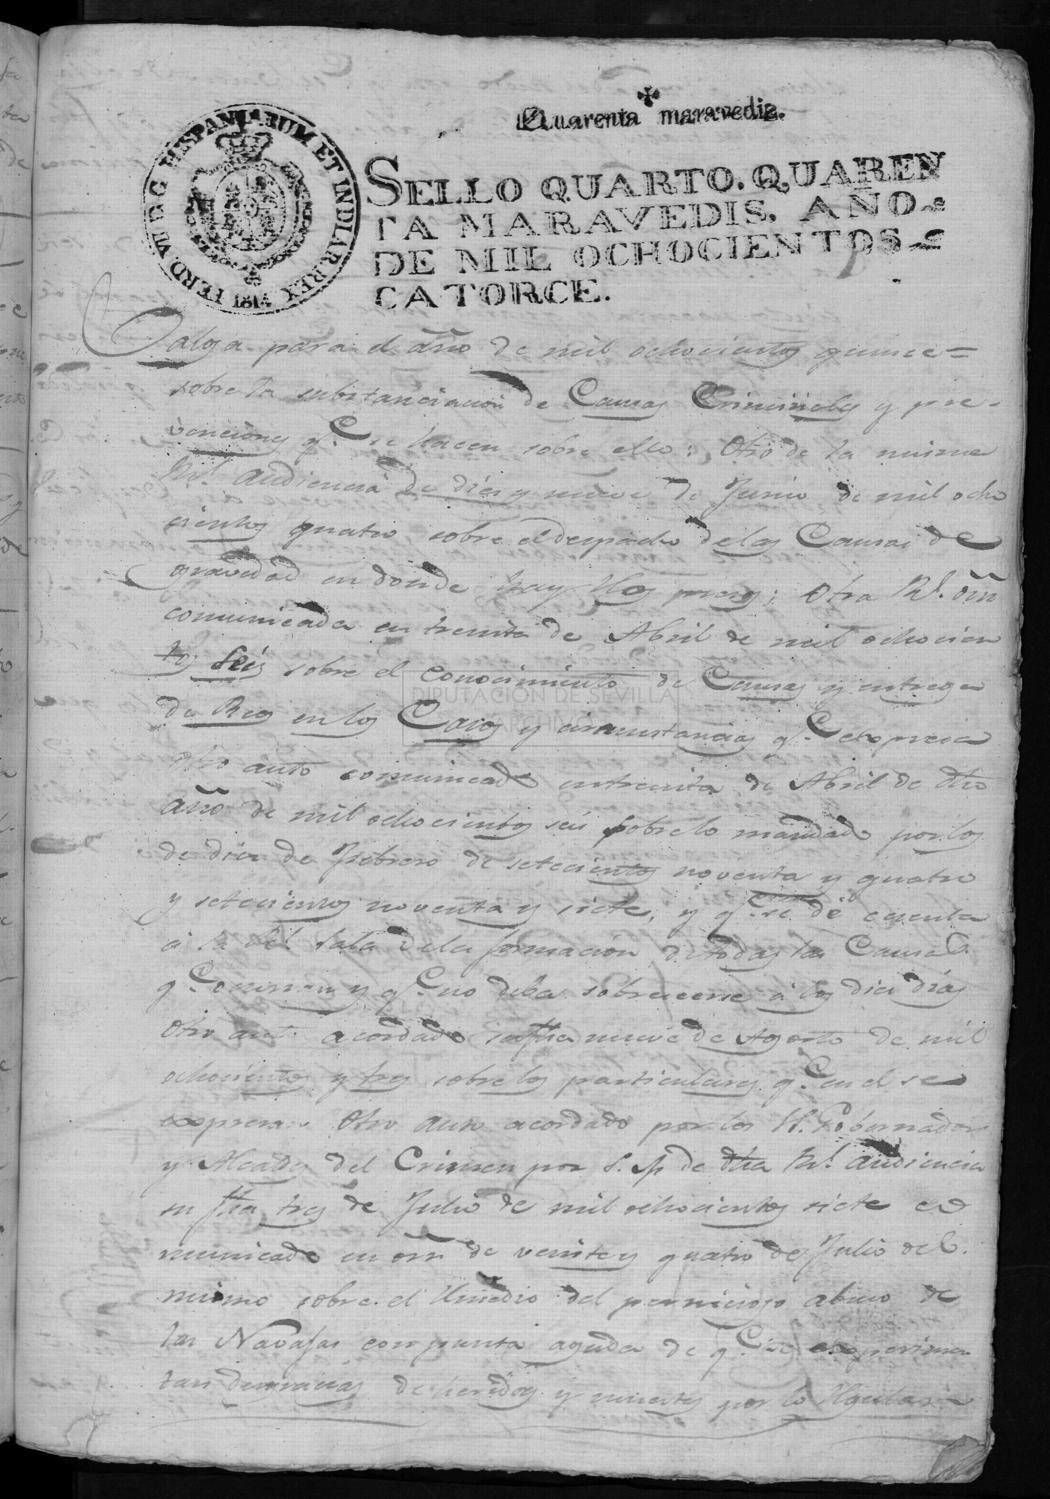 Quarenta maravedis.
SELLO QUARTO. QUAREN
TA MARAVEDIS. AÑO
DE MIL OCHOCIENTOS
CATORCE.
FERD VII D G HISPANIARUM ET INDIAR REX 1814
Valga para el año de mil ochocientos quince=
sobre la substanciacion de Causas Criminales y pre-
venciones q.e se hacen sobre ello: Otro de la misma
R.l Audiencia de diez y nueve de Junio de mil ocho
cientos quatro sobre el despacho de las Causas de
gravedad en donde hay Reos presos; Otra R.l orn
comunicada en treinta de Abril de mil ochocien
tos seis sobre el conocimiento de Causas y entrega
de Reos en los Casos y circunstancias q.e expresa
Otro auto comunicado en treinta de Abril de dho
año de mil ochocientos seis sobre lo mandado por los
de diez de Febrero de setecientos noventa y quatro
y setecientos noventa y siete, y q.e se dé cuenta
á la R.l Sala de la formacion de todas las Causas
q.e ocurran y q.e no deba sobreseerse á los diez dias
Otro aut. acordado su fha nueve de Agosto de mil
ochocientos y tres sobre los particulares q.e en el se
expresan Otro auto acordado por los S. Gobernador
y Alcaldes del Crimen por S. M de dha R.l Audiencia
su fha tres de Julio de mil ochocientos siete co
municado en orn de veinte y quatro de Julio del
mismo sobre el Remedio del pernicioso abuso de
las Navajas con punta aguda de q.e se experimen
tan desgracias de heridos y muertes por lo Regular
DIPUTACIÓN DE SEVILLA
ARCHIVO